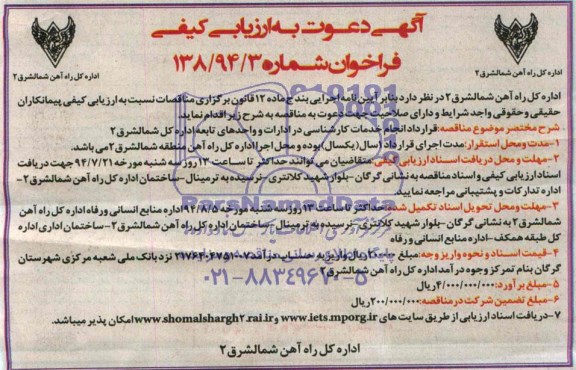 آگهی دعوت به ارزیابی کیفی
فراخوان شماره ۱۳۸/۹۴/۳
اداره کل راه آهن شمالشرق۲
اداره کل راه آهن شمالشرق۲
اداره کل راه آهن شمالشرق۲ در نظر دارد بنابر آیین نامه اجرایی بند ج ماده ۱۲ قانون برگزاری مناقصات نسبت به ارزیابی کیفی پیمانکاران
حقیقی و حقوقی واجد شرایط و دارای صلاحیت جهت دعوت به مناقصه به شرح زیر اقدام نماید.
شرح مختصر موضوع مناقصه: قرارداد انجام خدمات کارشناسی در ادارات و واحدهای تابعه اداره کل شمالشرق۲
۱-مدت و محل استقرار: مدت اجرای قرارداد ۱سال (یکسال) بوده و محل اجرا اداره کل راه آهن منطقه شمالشرق۲ می باشد.
۲-مهلت و محل دریافت اسناد ارزیابی کیفی: متقاضیان می توانند حداکثر تا ساعت ۱۳ روز سه شنبه مورخه ۹۴/۷/۲۱ جهت دریافت
اسناد ارزیابی کیفی و اسناد مناقصه به نشانی گرگان-بلوار شهید کلانتری-نرسیده به ترمینال-ساختمان اداره کل راه آهن شمالشرق۲-
اداره تدارکات و پشتیبانی مراجعه نمایند.
۳-مهلت و محل تحویل اسناد تکمیل شده: حداکثر تا ساعت ۱۳ روز سه شنبه مورخه ۹۴/۸/۵ اداره منابع انسانی و رفاه اداره کل راه آهن
شمالشرق۲ به نشانی گرگان-بلوار شهید کلانتری-نرسیده به ترمینال-ساختمان اداره کل راه آهن شمالشرق۲-ساختمان اداری اداره
کل طبقه همکف-اداره منابع انسانی و رفاه
۴-قیمت اسناد و نحوه واریز وجه: مبلغ ریال واریز به حساب درآمد نزد بانک ملی شعبه مرکزی شهرستان
گرگان بنام تمرکز وجوه درآمد اداره کل راه آهن شمالشرق۲
۵-مبلغ برآورد: ۴/۰۰۰/۰۰۰/۰۰۰ریال
۶-مبلغ تضمین شرکت در مناقصه: ۲۰۰/۰۰۰/۰۰۰ریال
۷-دریافت اسناد ارزیابی از طریق سایت های www.iets.mporg.ir و www.shomalshargh2.rai.ir امکان پذیر میباشد.
اداره کل راه آهن شمالشرق۲
ParsNamadData
۰۲۱-۸۸۳۴۹۶۷۰-۵